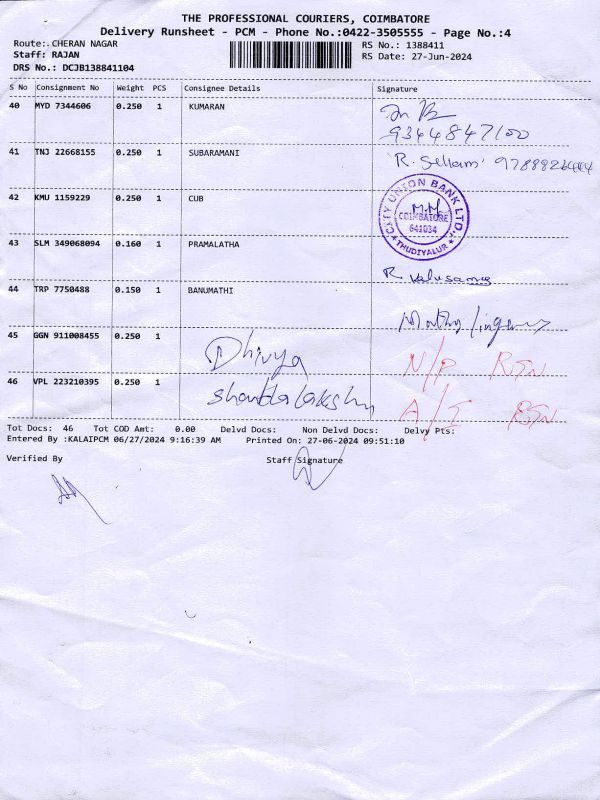 THE PROFESSIONAL COURIERS, COIMBATORE
Delivery Runsheet - PCM - Phone No.:0422-3505555 - Page No.:4
Route:.CHERAN NAGAR RS No.: 1388411
Staff: RAJAN RS Date: 27-Jun-2024
DRS No.: DCJB138841104
S No Consignment No Weight PCS Consignee Details Signature
40 MYD 7344606 0.250 1 KUMARAN
9344847100
41 TNJ 22668155 0.250 1 SUBARAMANI R. Sellam
42 KMU 1159229 0.250 1 CUB
CITY UNION BANK LTD.
M.M
COIMBATORE
641034
THUDIYALUR
43 SLM 349068094 0.160 1 PRAMALATHA
R Valusamy
44 TRP 7750488 0.150 1 BANUMATHI
45 GGN 911008455 0.250 1 Dhivya N/P RSN
46 VPL 223210395 0.250 1 A/I RSN
Tot Docs: 46 Tot COD Amt: 0.00 Delvd Docs: Non Delvd Docs: Delvy Pts:
Entered By :KALAIPCM 06/27/2024 9:16:39 AM Printed On: 27-06-2024 09:51:10
Verified By Staff Signature